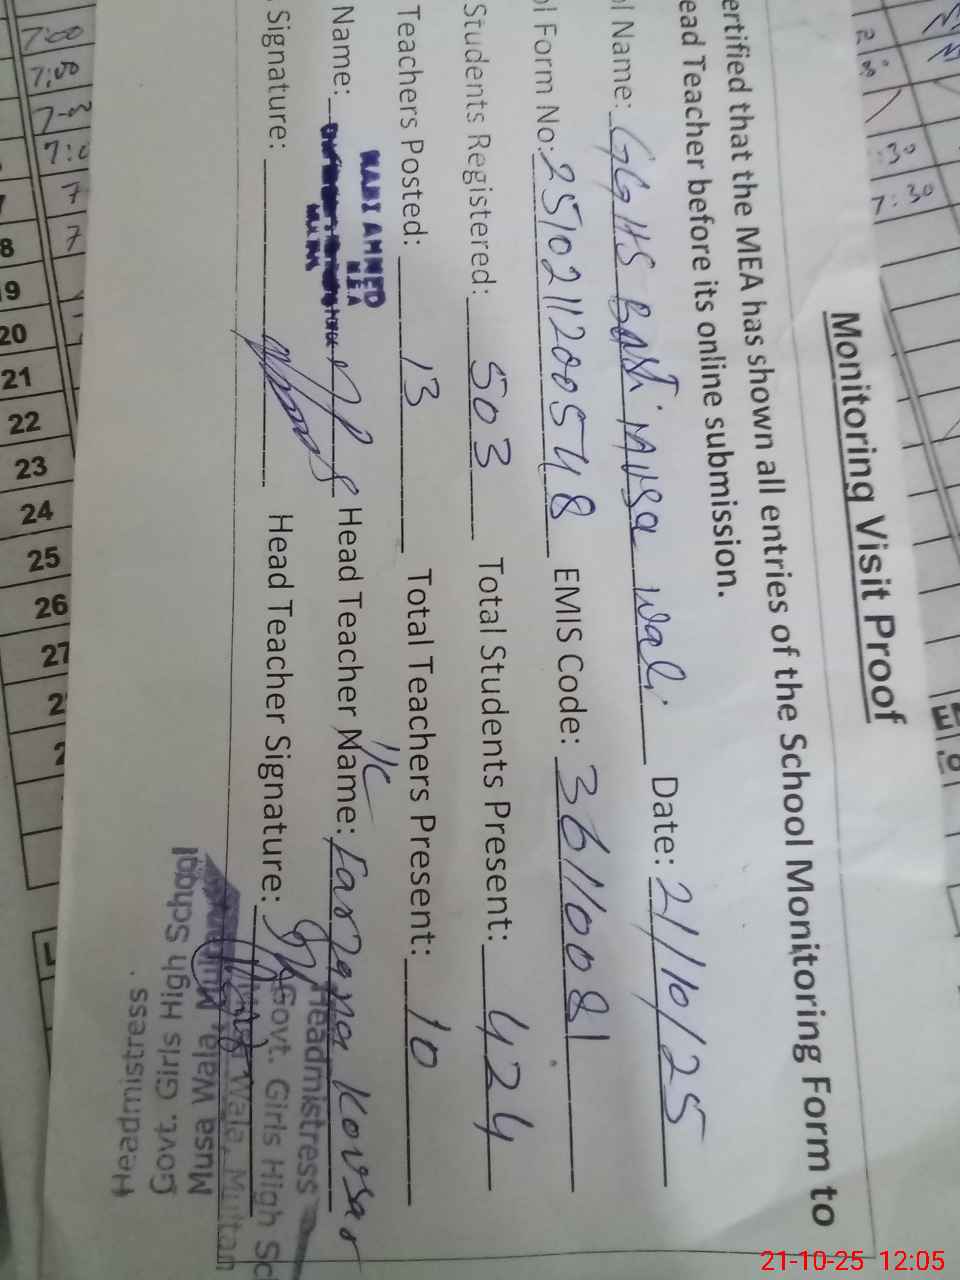 Monitoring Visit Proof
ertified that the MEA has shown all entries of the School Monitoring Form to
ead Teacher before its online submission.
ol Name: GGHS Basti Musa Wali Date: 21/10/25
ol Form No: 2510211200548 EMIS Code: 36110081
Students Registered: 503 Total Students Present: 424
Teachers Posted: 13 Total Teachers Present: 10
NABI AHMED
M.E.A
Name: Head Teacher Name: I/C Farzana Kousar
Signature: Head Teacher Signature:
Headmistress
Govt. Girls High Sc
Wala, Multan
Musa Wala, Multan
Govt. Girls High School
Headmistress
7:00
7:00
7
7
8
19
20
21
22
23
24
25
26
27
21-10-25 12:05